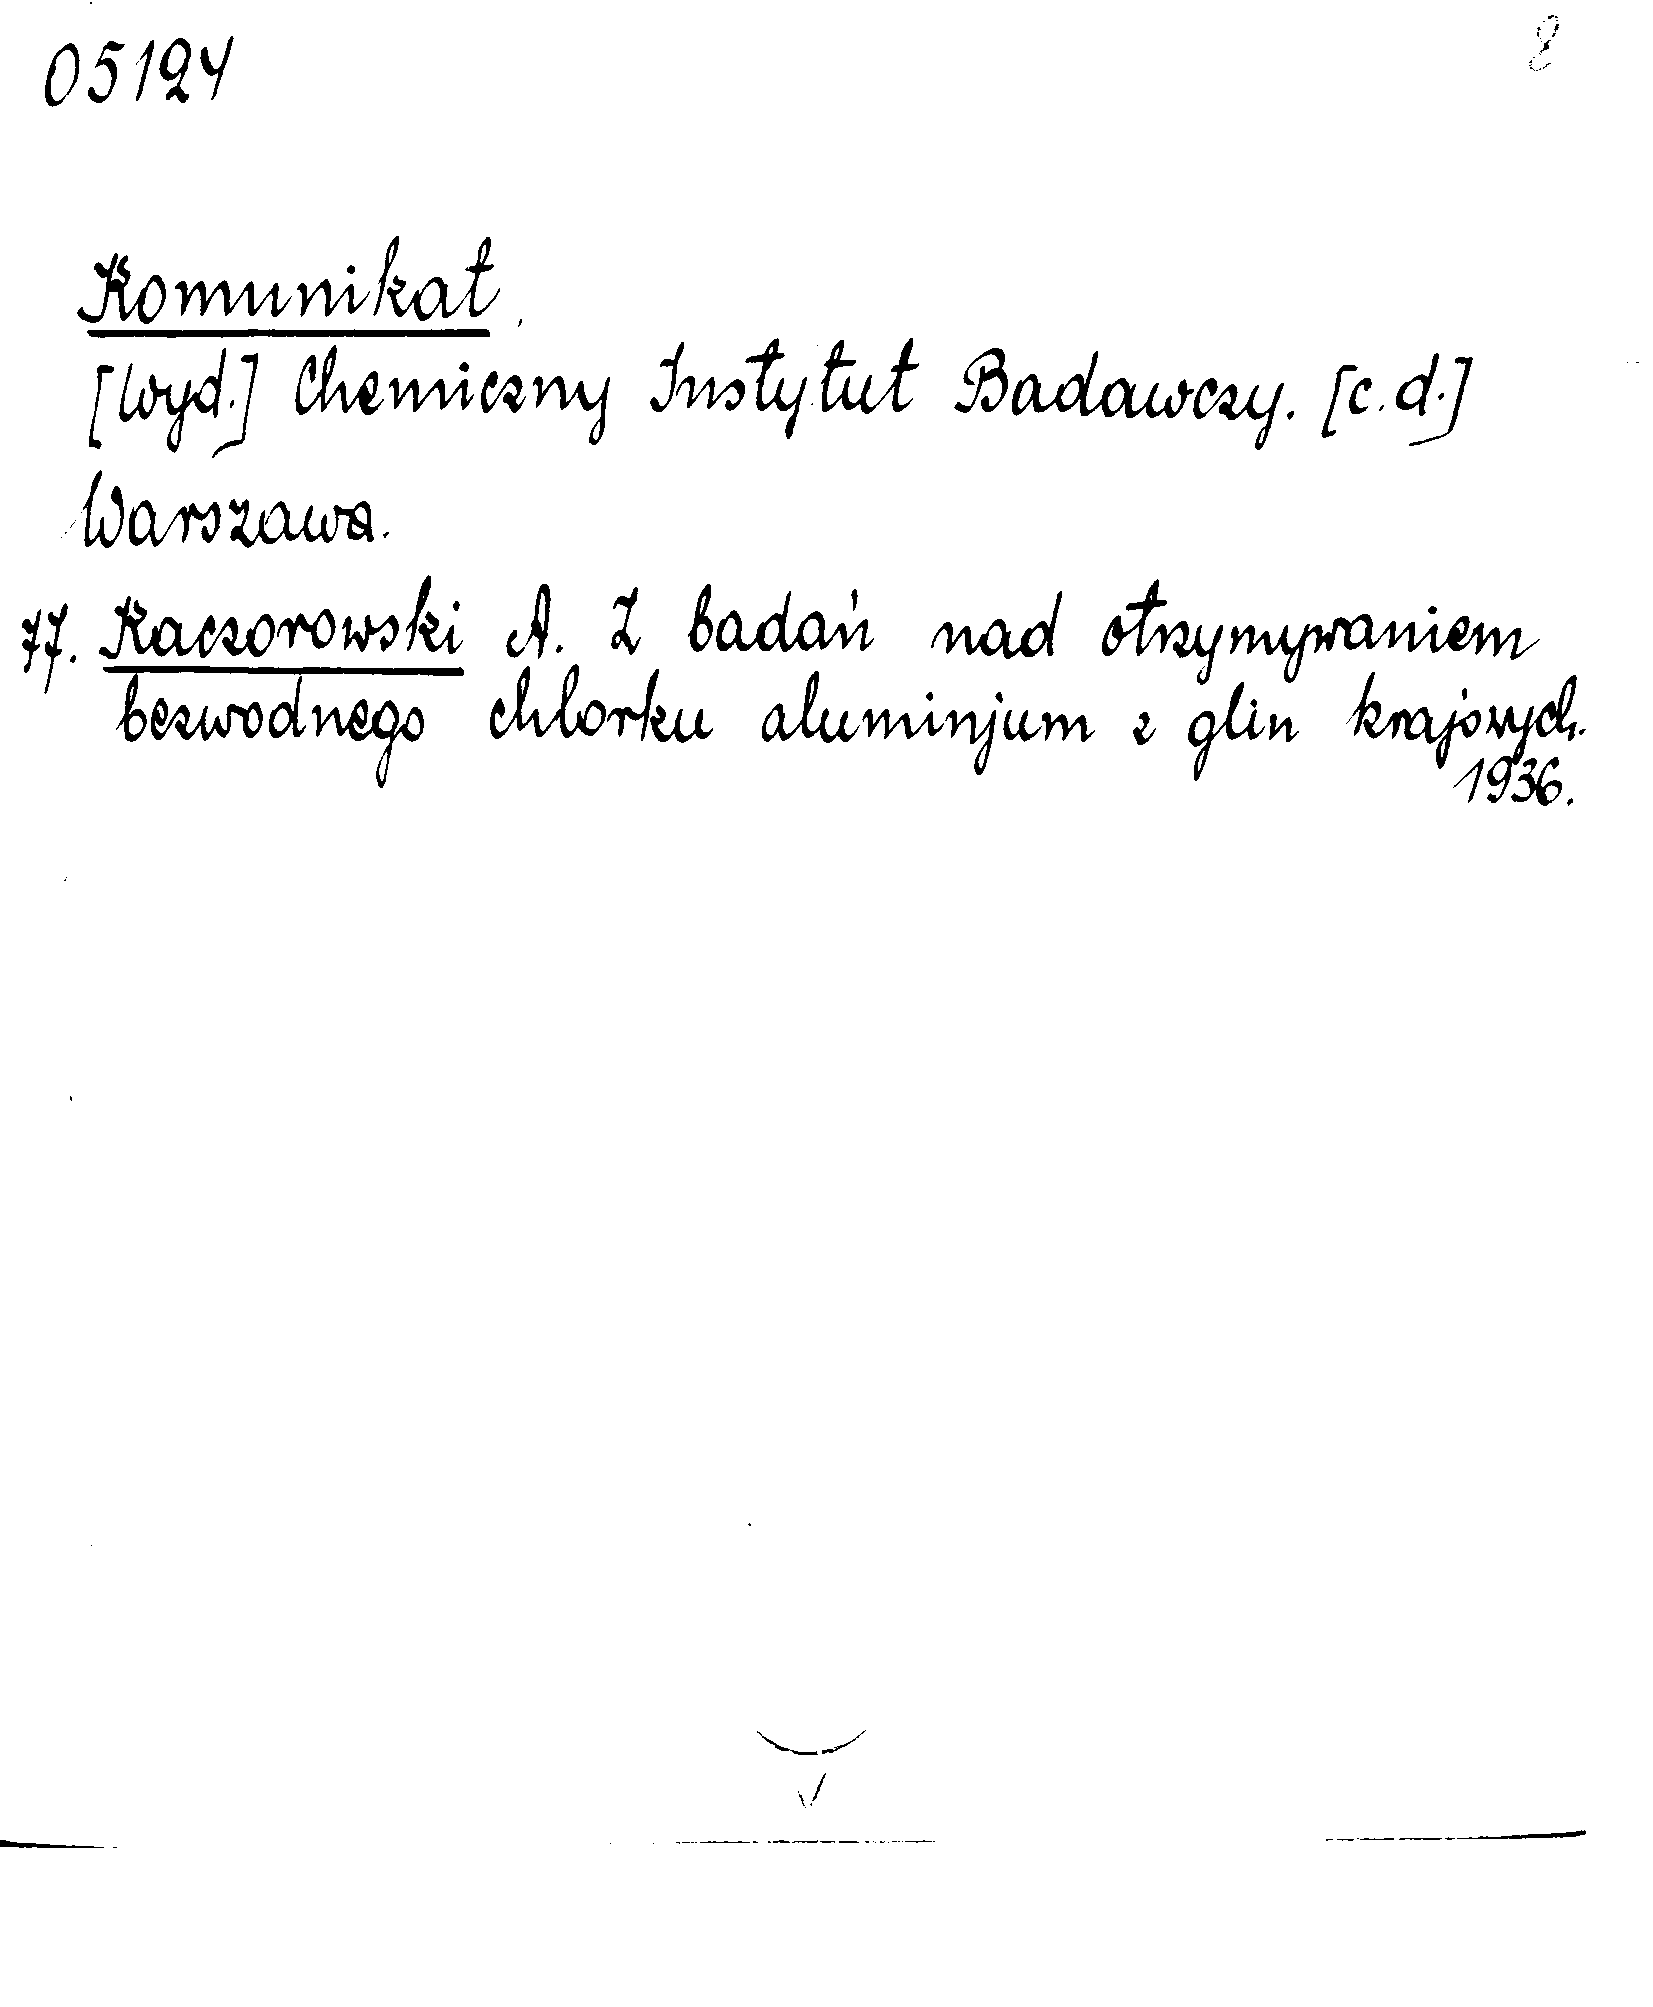 05124
8
Komunikat
[Wyd.] Chemiczny Instytut Badawczy. [c.d.]
Warszawa.
77. Kaczorowski A. Z badań nad otrzymywaniem
bezwodnego chlorku aluminjum z glin krajowych.
1936.